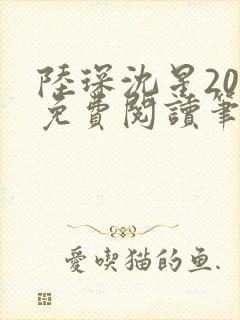 陸琛沈星20
免費閱讀筆
愛喫猫的鱼.